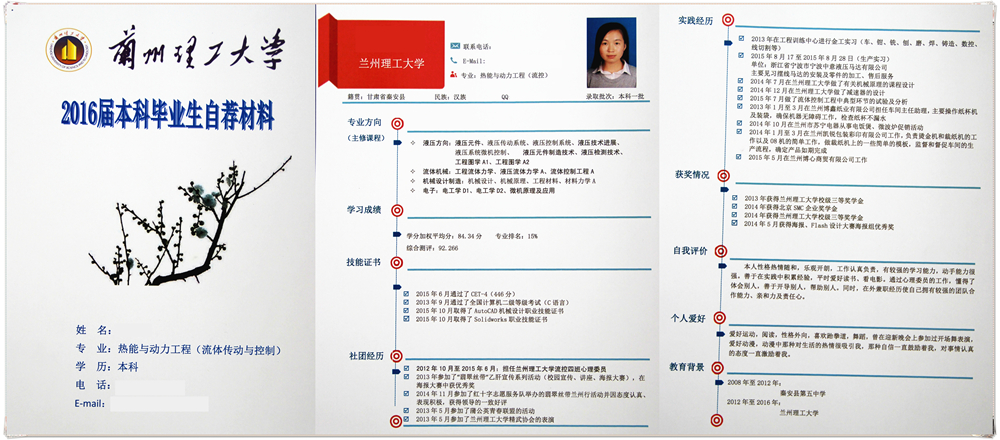 兰州理工大学
2016届本科毕业生自荐材料
姓 名：
专 业：热能与动力工程（流体传动与控制）
学 历：本科
电 话：
E-mail：
兰州理工大学
联系电话：
E-Mail：
专业：热能与动力工程（流控）
籍贯：甘肃省秦安县 民族：汉族 QQ 录取批次：本科一批
专业方向
（主修课程）
液压方向：液压元件、液压传动系统、液压控制系统、液压技术进展、
液压系统微机控制、 液压元件制造技术、液压检测技术、
工程图学 A1、工程图学 A2
流体机械：工程流体力学、液压流体力学 A、流体控制工程 A
机械设计制造：机械设计、机械原理、工程材料、材料力学 A
电子：电工学 D1、电工学 D2、微机原理及应用
学习成绩
学分加权平均分：84.34 分 专业排名：15%
综合测评：92.266
技能证书
2015 年 6 月通过了 CET-4（446 分）
2013 年 9 月通过了全国计算机二级等级考试（C 语言）
2015 年 10 月取得了 AutoCAD 机械设计职业技能证书
2015 年 10 月取得了 Solidworks 职业技能证书
社团经历
2012 年 10 月至 2015 年 6 月：担任兰州理工大学流控四班心理委员
2013 年参加了“翡翠丝带”乙肝宣传系列活动（校园宣传、讲座、海报大赛），在
海报大赛中获优秀奖
2014 年 11 月参加了红十字志愿服务队举办的翡翠丝带兰州行活动并因态度认真、
表现积极，获得领导的一致好评
2013 年 5 月参加了蒲公英青春联盟的活动
2013 年 5 月参加了兰州理工大学精武协会的表演
实践经历
2013 年在工程训练中心进行金工实习（车、钳、铣、刨、磨、焊、铸造、数控、
线切割等）
2015 年 8 月 17 至 2015 年 8 月 28 日（生产实习）
单位：浙江省宁波市宁波中意液压马达有限公司
主要见习摆线马达的安装及零件的加工、售后服务
2014 年 7 月在兰州理工大学做了有关机械原理的课程设计
2014 年 12 月在兰州理工大学做了减速器的设计
2015 年 7 月做了流体控制工程中典型环节的试验及分析
2013 年 1 月至 3 月在兰州博鑫纸业有限公司担任车间主任助理，主要操作纸杯机
及装袋，确保机器无障碍工作，检查纸杯不漏水
2014 年 10 月在兰州市苏宁电器从事电饭煲、微波炉促销活动
2014 年 1 月至 3 月在兰州凯锐包装彩印有限公司工作，负责烫金机和裁纸机的工
作以及 08 机的简单工作，做裁纸机上的一些简单的模板，监督和督促车间的生
产流程，确定产品如期完成
2015 年 5 月在兰州博心商贸有限公司工作
获奖情况
2013 年获得兰州理工大学校级三等奖学金
2014 年获得北京 SMC 企业奖学金
2014 年获得兰州理工大学校级三等奖学金
2014 年 5 月获得海报、Flash 设计大赛海报组优秀奖
自我评价
本人性格热情随和，乐观开朗，工作认真负责，有较强的学习能力，动手能力很
强，善于在实践中积累经验，平时爱好读书、看电影。通过心理委员的工作，懂得了
体会别人，善于开导别人，帮助别人。同时，在外兼职经历使自己拥有较强的团队合
作能力、亲和力及责任心。
个人爱好
爱好运动，阅读，性格外向，喜欢跆拳道，舞蹈，曾在迎新晚会上参加过开场舞表演，
爱好动漫，动漫中那种对生活的热情很吸引我，那种自信一直激励着我，对事情认真
的态度一直激励着我。
教育背景
2008 年至 2012 年：
秦安县第五中学
2012 年至 2016 年：
兰州理工大学